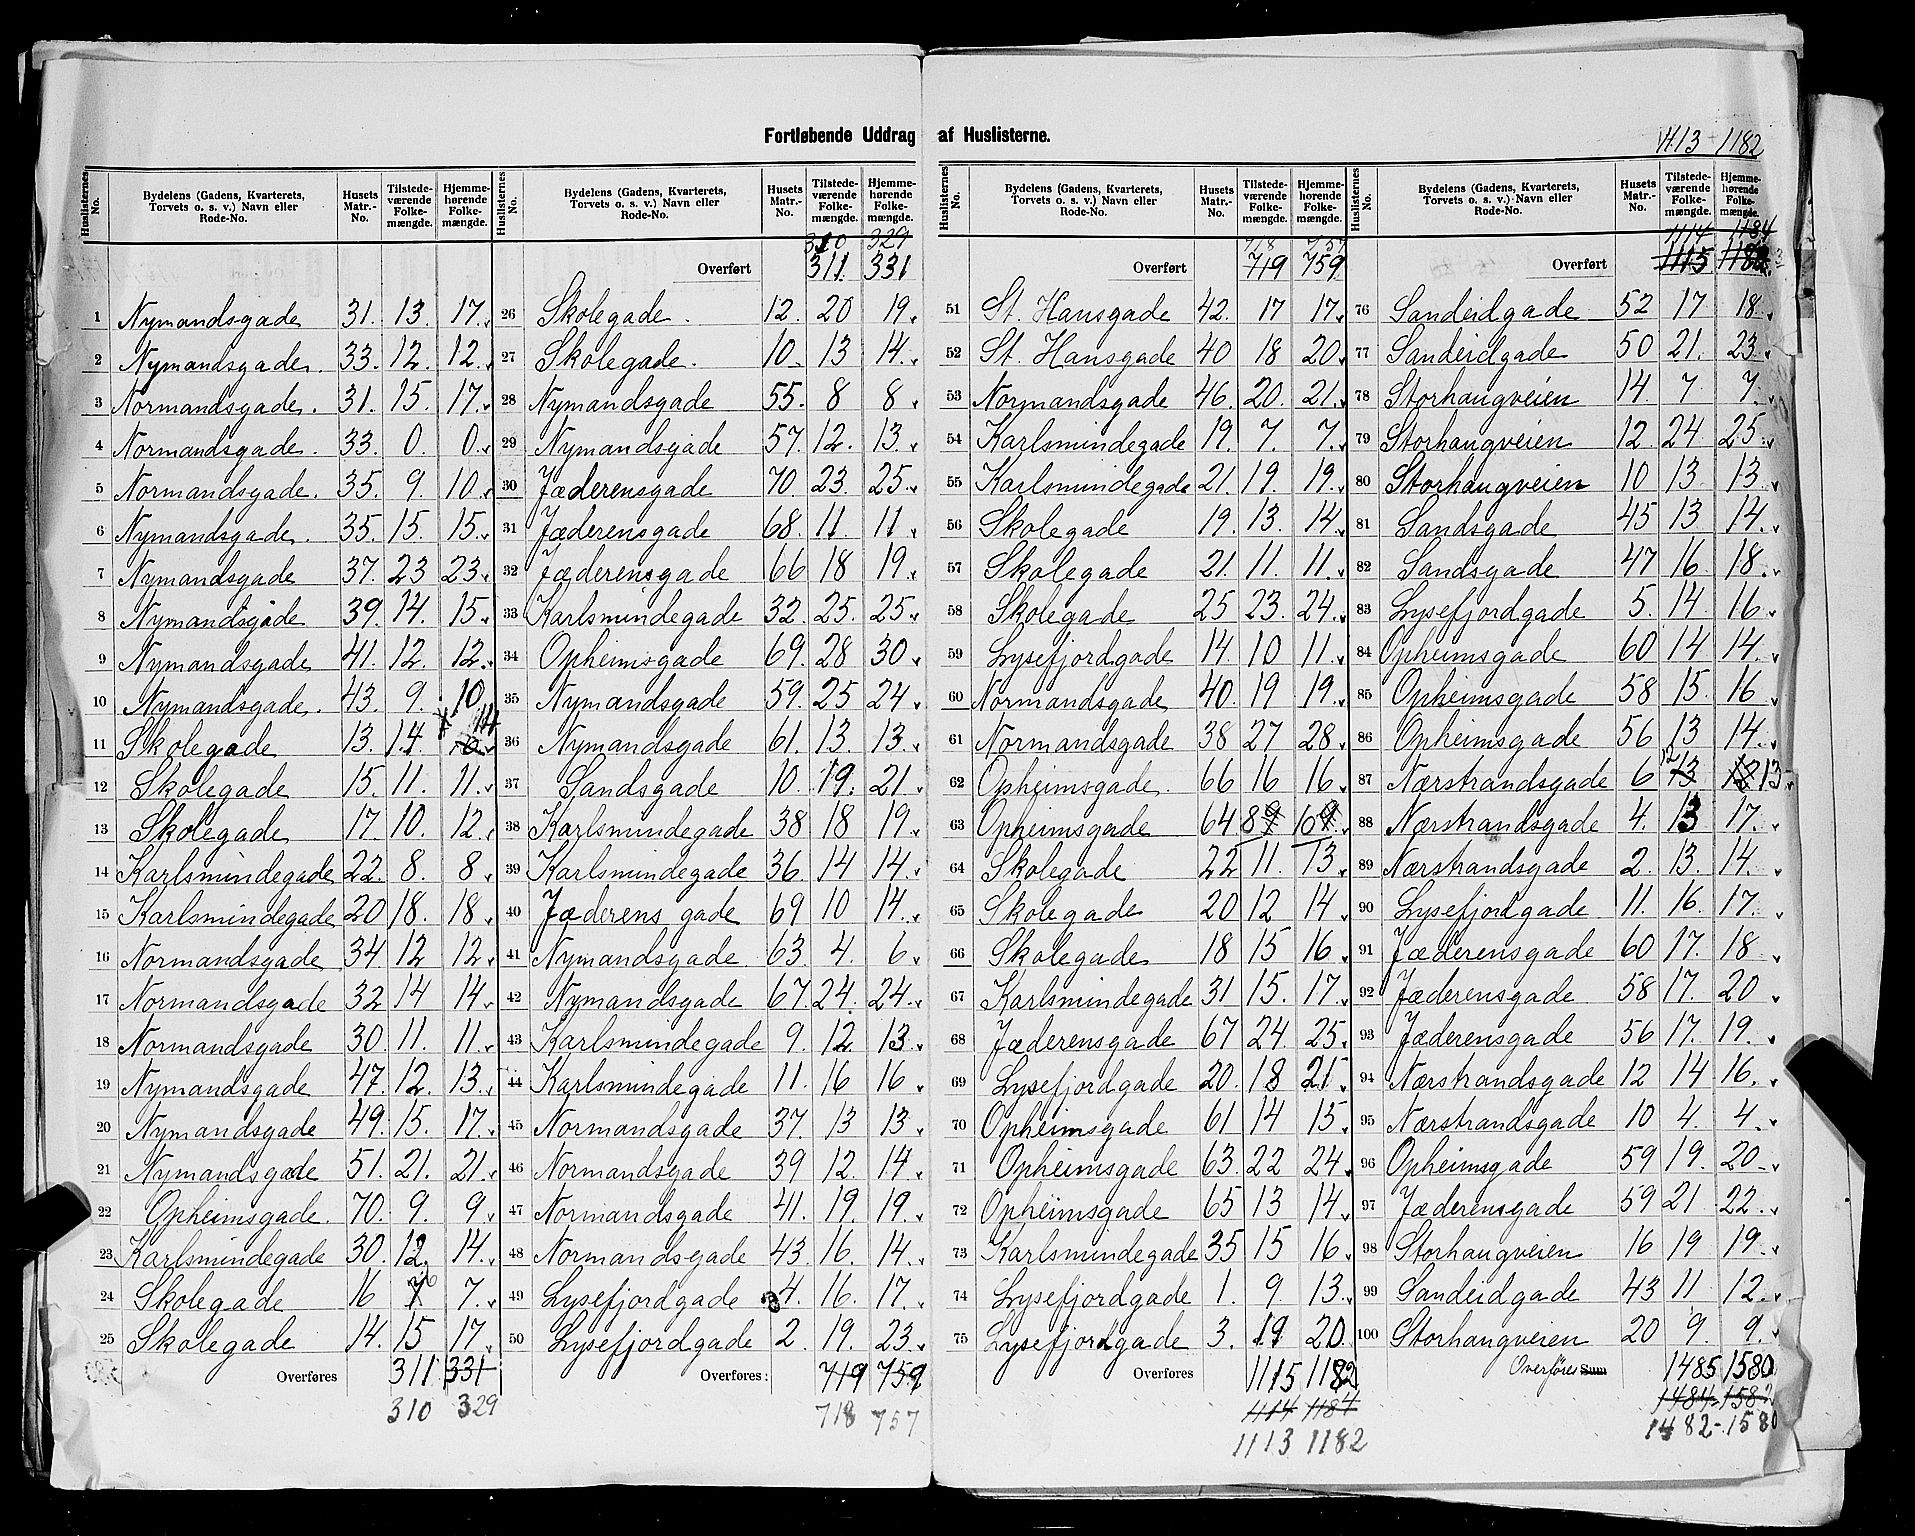 Fortløbende Uddrag af Huslisterne.
1113 - 1182
Huslisternes No. Bydelens (Gadens, Kvarterets, Torvets o. s. v.) Navn eller Rode-No. Husets Matr.-No. Tilstedeværende Folkemængde. Hjemmehørende Folkemængde.
310 329
Overført 311. 331
1 Nymandsgade 31. 13. 17.
2 Nymandsgade. 33. 12. 12.
3 Normandsgade. 31. 15. 17.
4 Normandsgade. 33. 0. 0.
5 Normandsgade. 35. 9. 10.
6 Nymandsgade. 35. 15. 15.
7 Nymandsgade 37. 23 23.
8 Nymandsgade 39. 14. 15.
9 Nymandsgade 41. 12. 12.
10 Nymandsgade. 43. 9. 10.
11 Skolegade 13. 14. 14
12 Skolegade 15. 11. 11.
13 Skolegade 17 10. 12.
14 Karlsmindegade 22. 8. 8.
15 Karlsmindegade 20 18. 18.
16 Normandsgade 34. 12 12.
17 Normandsgade 32 14 14.
18 Normandsgade 30. 11. 11.
19 Nymandsgade 47. 12. 13.
20 Nymandsgade 49. 15. 17.
21 Nymandsgade 51. 21. 21.
22 Opheimsgade. 70. 9. 9.
23 Karlsmindegade 30. 12. 14.
24 Skolegade 16 7 6 7.
25 Skolegade 14. 15 17.
Overføres 311 331
310 329
26 Skolegade. 12. 20 19.
27 Skolegade. 10. 13 14.
28 Nymandsgade 55. 8 8
29 Nymandsgade 57. 12. 13.
30 Jæderensgade 70. 23. 25.
31 Jæderensgade 68. 11. 11.
32 Jæderensgade 66 18 19.
33 Karlsmindegade 32. 25. 25.
34 Opheimsgade 69. 28 30
35 Nymandsgade 59. 25 24
36 Nymandsgade 61. 13. 13.
37 Sandsgade 10. 19. 21.
38 Karlsmindegade 38 18 19.
39 Karlsmindegade 36. 14 14.
40 Jæderens gade 69 10 14.
41 Nymandsgade 63. 4. 6
42 Nymandsgade 67. 24. 24.
43 Karlsmindegade 9. 12 13.
44 Karlsmindegade 11. 16 16
45 Normandsgade 37. 13 13
46 Normandsgade 39 12. 14.
47 Normandsgade 41. 19. 19.
48 Normandsgade 43. 16. 14.
49 Lysefjordgade 4. 16. 17.
50 Lysefjordgade 2. 19. 23.
Overføres: 719 759
718 757
Huslisternes No. Bydelens (Gadens, Kvarterets, Torvets o. s. v.) Navn eller Rode-No. Husets Matr.-No. Tilstedeværende Folkemængde. Hjemmehørende Folkemængde.
718 757
Overført 719 759
51 St. Hansgade 42. 17 17.
52 St. Hansgade 40 18 20.
53 Normandsgade 46. 20. 21.
54 Karlsmindegade 19. 7. 7.
55 Karlsmindegade 21. 19. 19.
56 Skolegade 19. 13. 14.
57 Skolegade 21. 11. 11.
58 Skolegade 25 23. 24.
59 Lysefjordgade 14. 10 11.
60 Normandsgade 40. 19 19.
61 Normandsgade 38 27 28.
62 Opheimsgade. 66 16 16.
63 Opheimsgade 64 8 9 10 9
64 Skolegade 22 11. 13.
65 Skolegade 20 12 14
66 Skolegade 18 15 16
67 Karlsmindegade 31 15. 17.
68 Jæderensgade 67 24. 25.
69 Lysefjordgade 20. 18 21.
70 Opheimsgade 61 14 15
71 Opheimsgade 63. 22 24.
72 Opheimsgade 65 13 14.
73 Karlsmindegade 35 15 16
74 Lysefjordgade 1. 9. 13.
75 Lysefjordgade 3. 19 20.
Overføres 1115 1182
1114 1184
1113 1182
1114 1184
Overført 1115 1182
76 Sandeidgade 52 17 18.
77 Sandeidgade 50 21. 23.
78 Storhaugveien 14. 7. 7.
79 Storhaugveien 12. 24 25.
80 Storhaugveien 10 13 13.
81 Sandsgade 45 13 14.
82 Sandsgade 47 16. 18.
83 Lysefjordgade 5. 14. 16
84 Opheimsgade 60 14 14.
85 Opheimsgade 58 15. 16
86 Opheimsgade 56 13 14.
87 Nærstrandsgade 6 12 13 13.
88 Nærstrandsgade 4. 13 17.
89 Nærstrandsgade 2. 13. 14.
90 Lysefjordgade 11. 16. 17.
91 Jæderensgade 60 17. 18
92 Jæderensgade 58 17. 20
93 Jæderensgade 56 17. 19.
94 Nærstrandsgade 12 14 16.
95 Nærstrandsgade 10 4. 4.
96 Opheimsgade 59 19. 20.
97 Jæderensgade 59 21 22.
98 Storhaugveien 16 19 19.
99 Sandeidgade 43 11 12.
100 Storhaugveien 20 9. 9.
Overføres Sum 1485 1580
1484 1582
1482 - 1580